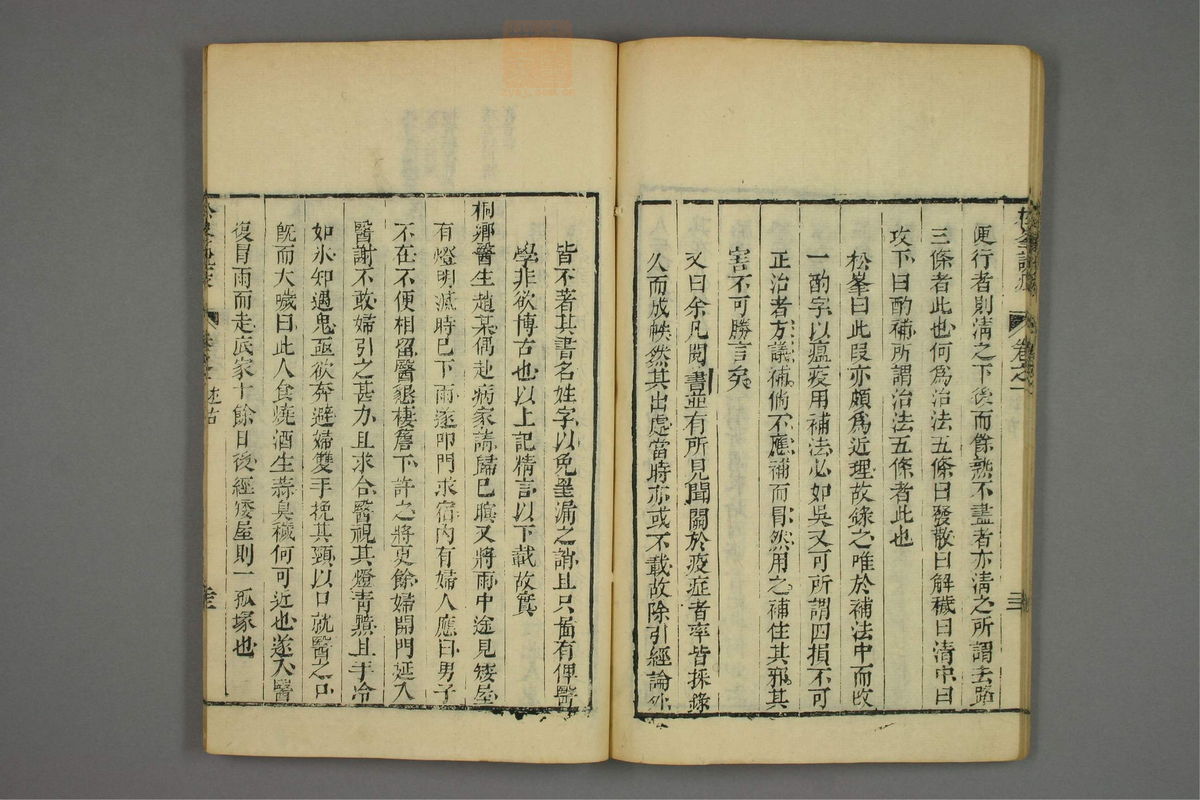 便行者則清之下後而餘熱不盡者亦清之所謂去路
三條者此也何爲治法五條曰發散曰解穢曰清中曰
攻下曰酌補所謂治法五條者此也
松峯曰此段亦頗爲近理故錄之唯於補法中而改
一酌字以瘟疫用補法必如吳又可所謂四損不可
正治者方議補倘不應補而冒然用之補住其邪其
害不可勝言矣
又曰余凡閱書並有所見聞關於疫症者率皆採錄
久而成帙然其出處當時亦或不載故除引經論外
卷之一
皆不著其書名姓字以免罣漏之誚且只啚有俾醫
學非欲博古也以上記精言以下載故實
桐鄉醫生趙某偶赴病家請歸已暝又將雨中途見矮屋
有燈明滅時已下雨遂叩門求宿內有婦人應曰男子
不在不便相留醫懇棲簷下許之將更餘婦開門延入
醫謝不敢婦引之甚力且求合醫視其燈青黯且手冷
如氷知遇鬼亟欲奔避婦雙手挽其頸以口就醫之口
既而大噦曰此人食燒酒生蒜臭穢何可近也遂入醫
復冒雨而走底家十餘日後經矮屋則一孤塚也
述古